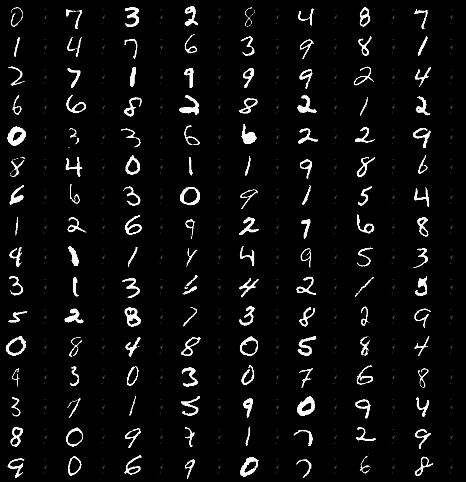 0 7 3 2 8 4 8 7
1 4 7 6 3 9 8 1
2 7 1 9 9 9 2 4
6 6 8 2 8 2 1 2
0 3 3 6 6 2 2 9
8 4 0 1 1 9 8 6
6 6 3 0 9 1 5 4
1 2 6 9 2 7 6 8
9 1 1 4 4 9 5 3
3 1 3 6 4 2 1 5
5 2 8 7 3 8 2 9
0 8 4 8 0 5 8 4
9 3 0 3 0 7 6 8
3 7 1 5 9 0 9 4
8 0 9 7 1 7 2 9
9 0 6 9 0 7 6 8